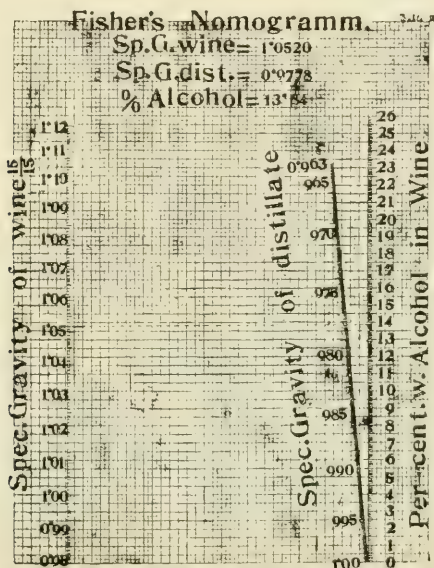 Fisher's Nomogramm.
Sp.G.wine= 1·0520
Sp.G.dist.= 0·9778
% Alcohol=
Spec.Gravity of wine 15/15
1·12
1·11
1·10
1·09
1·08
1·07
1·06
1·05
1·04
1·03
1·02
1·01
1·00
0·99
0·98
Spec.Gravity of distillate
0·963
965
970
975
980
985
990
995
1·00
26
25
24
23
22
21
20
19
18
17
16
15
14
13
12
11
10
9
8
7
6
5
4
3
2
1
0
Per cent.w. Alcohol in Wine